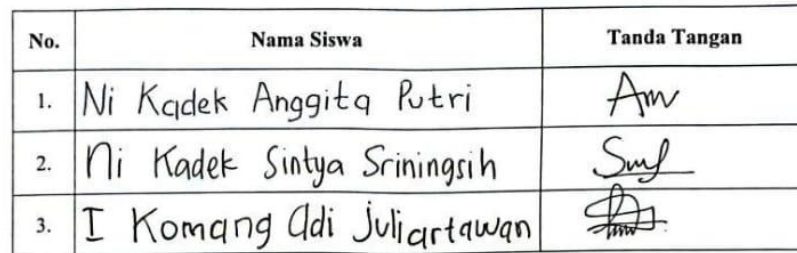 No. Nama Siswa Tanda Tangan
1. Ni Kadek Anggita Putri
2. Ni Kadek Sintya Sriningsih
3. I Komang Adi Juliartawan